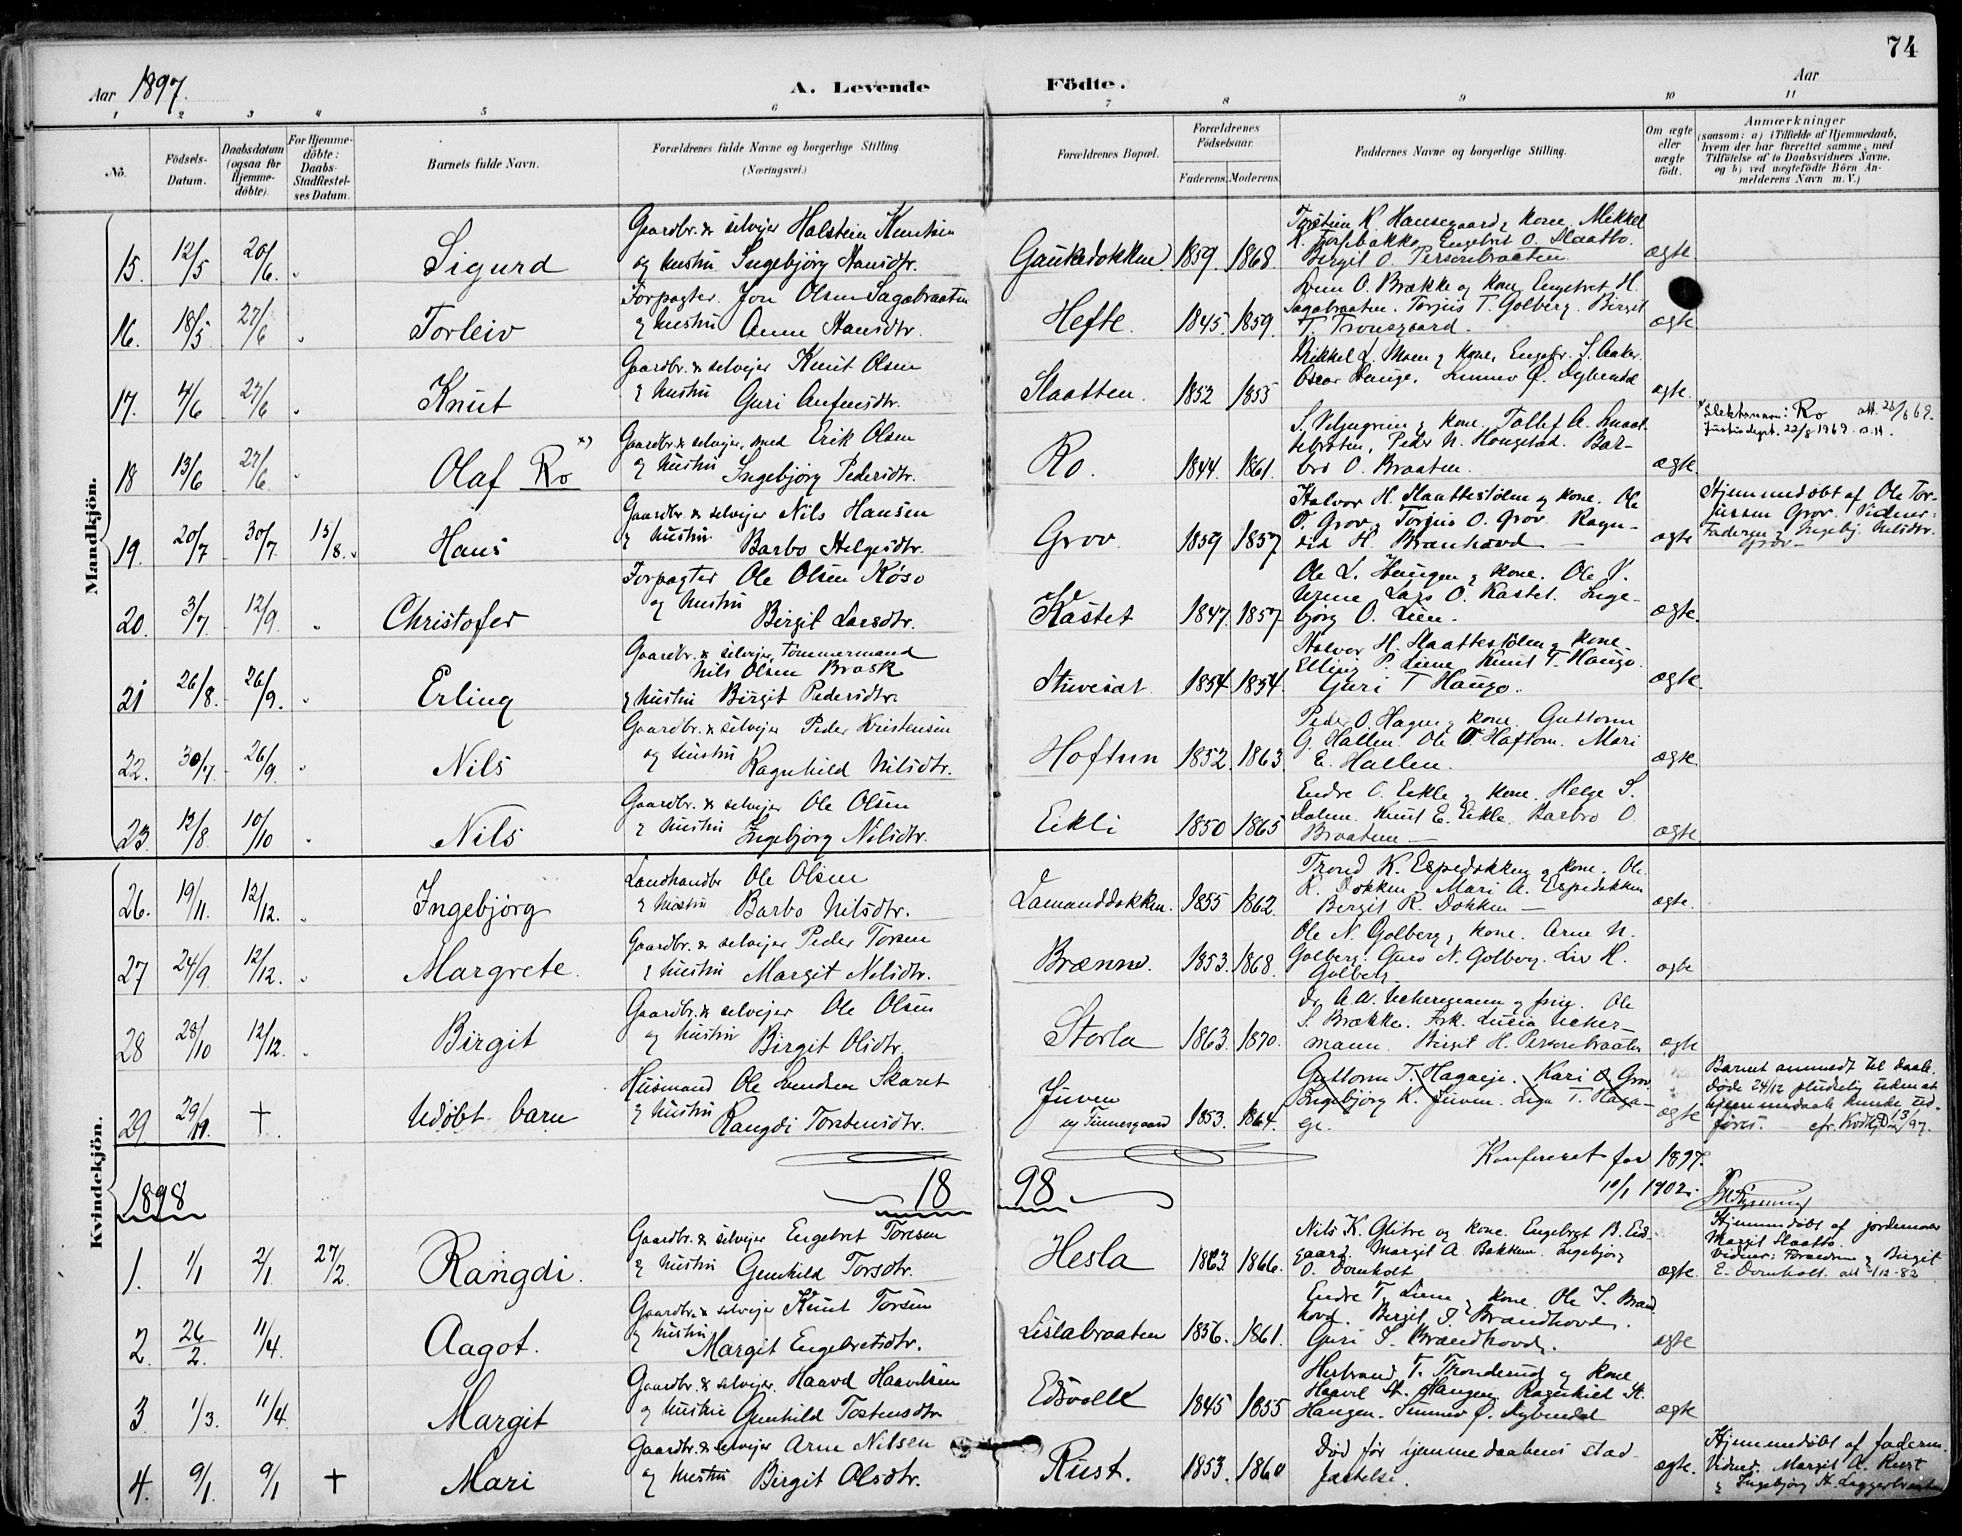 74
Aar 1897. A. Levende Födte. Aar
1 2 3 4 5 6 7 8 9 10 11
No. Födsels-Datum. Daabsdatum (ogsaa för Hjemme-döbte). For Hjemme-döbte: Daabs-Stadfæstel-ses Datum. Barnets fulde Navn. Forældrenes fulde Navne og borgerlige Stilling. (Næringsvei.) Forældrenes Bopæl. Forældrenes Födselsaar. Faderens. Moderens. Faddernes Navne og borgerlige Stilling. Om ægte eller uægte födt. Anmærkninger (saasom: a) i Tilfælde af Hjemmedaab, hvem der har forrettet samme, med Tilföielse af to Daabsvidners Navne, og b) ved uægtefödte Börn An-melderens Navn m.V.)
Mandkjön.
15. 12/5 20/6. Sigurd Gaardbr. & selvejer Holstein Knutsen og hustru Ingebjörg Hansdtr. Gaukedokken. 1859. 1868. Torstein K. Hansegaard & kone. Mikkel K. Torsbakke Engebret O. Slaatto. Birgit O. Persenbraaten. ægte
16. 18/5 27/6 Torleiv Forpagter Jon Olsen Sagabraaten & hustru Anne Hansdtr. Hefte. 1845. 1859. Svein O. Brække og kone Engebret H. Sagabraaten. Torjus T. Golberg. Birgit T. Tronsgaard. ægte
17. 4/6 27/6 Knut Gaardbr. & selvejer Knut Olsen & hustru Guri Anfinsdtr. Slaatten. 1852 1855 Mikkel L. Moen & kone, Engebr. S. Aaker. Oscar Hauge. ægte.
18 13/6 27/6 Olaf Ro x) Gaardbr. & selvejer, smed Erik Olsen og hustru Ingebjörg Pedersdtr. Ro. 1844. 1861. kone. Tollef A. Peder N. Haugstad. Bar-bro O. Braaten. ægte Slektsnavn: Ro Justisdept. 22/8 1969.
19. 20/7 30/7. 15/8. Hans Gaardbr. & selvejer Nils Hansen & hustru Barbo Helgesdtr. Grov. 1859 1857 Halvor H. Slaattestölen & kone. Ole T. Grov, Torjus O. Grov. Ragn-did H. Brænhovd — ægte Hjemmedöbt af Ole Tor-jussen Grov. Vidner: Faderen & Ingebj. Nilsdtr. Grov —
20. 3/7. 12/9. Christofer Forpagter Ole Olsen Röso og hustru Birgit Larsdtr. Kastet 1847. 1857 Ole L. Haugen & kone. Ole Lars O. Kastet. Inge-björg O. Lien. ægte.
21 26/8. 26/9. Erling Gaardbr. & selvejer, tömmermand Nils Olsen Brask & hustru Birgit Pedersdtr. 1854. 1854. Halvor H. Slaattestölen & kone Elling P. Liene Knut T. Haugo. Guri T Haugo. ægte.
22. 30/7. 26/9. Nils Gaardbr. & selvejer Peder Kristensen og hustru Ragnhild Nilsdtr. Hoftun 1852. 1863. Peder O. Hagen & kone. Guttorm G. Hallen. Ole T. Haftom. Mari E. Hallen. ægte.
23. 12/8. 10/10 Nils Gaardbr. & selvejer Ole Olsen & hustru Ingebjörg Nilsdtr. Eikli 1850 1865 Endre O. Eikle & kone. Helge S. Dalen. Knut E. Eikle. Barbro O. Braaten — ægte
Kvindekjön.
26. 19/11. 12/12. Ingebjörg Landhandler Ole Olsen & hustru Barbo Nilsdtr. Lamanddokken. 1855 1862. Trond K. Espedokken & kone. Ole K. Dokken. Mari A. Espedokken Bergit R. Dokken — ægte.
27 24/9 12/12. Margrete. Gaardbr. & selvejer Peder Torsen & hustru Margit Nilsdtr. Brænno. 1853. 1868. Ole N. Golberg, kone. Arne N. Golberg. Guro N. Golberg. Liv H. Golberg ægte
28 28/10 12/12. Birgit Gaardbr. & selvejer Ole Olsen og hustru Birgit Olsdtr. Storla 1863. 1870. Dr A. A. Uchermann & frue. Ole S. Brække. Frk. Lucia Ucher-mann. Birgit H. Persenbraaten ægte
29 29/11. † Udöbt barn Husmand Ole Svendsen Skaret & hustru Rangdi Torstensdtr. Juven og Finnesgaard 1853. 1864. Guttorm T. Hagaeje. Kari O Grov Ingebjörg K. Juven. Liga T. Haga-eje. ægte Barnet anmeldt til daab. Döde 24/12 pludselig uden at hjemmedaab kunde ud-föres.
Konfereret for 1897.
10/1 1902.
1898 18 98.
1. 1/1 2/1 27/2. Rangdi. Gaardbr. & selvejer Engebret Torsen & hustru Gunhild Torsdtr. Hesla 1863 1866. Nils K. Glitre og kone. Engebret B. Eid-gaard. Margit A. Bakken. Ingebjörg O. Dornholt ægte. Hjemmedöbt af jordemoder Margit Slaatto. Vidner: Forældrene & Birgit E. Dornholt.
2. 26/2. 11/4. Aagot. Gaardbr. & selvejer Knut Torsen & hustru Margit Engebretsdtr. Lislabraaten 1856. 1861. Endre T. Liene & kone. Ole S. Brand-hovd. Bergit S. Brandhovd. Guri S. Brandhovd. ægte
3. 1/3. 11/4. Margit Gaardbr. & selvejer. Haavd Haavelsen og hustru Gunhild Tostensdtr. Edsvolld 1845 1855 Herbrand T. Thonderud & kone Haavel St. Haugen. Ragnhild St. Haugen. ægte
4. 9/1. 9/1 † Mari Gaardbr. & selvejer Arne Nilsen og hustru Birgit Olsdtr. Rust. 1853. 1860 Död för hjemmedaabens stad-fæstelse. ægte. Hjemmedöbt af faderen. Vidner: Margit A. Rust & Ingebjörg H.